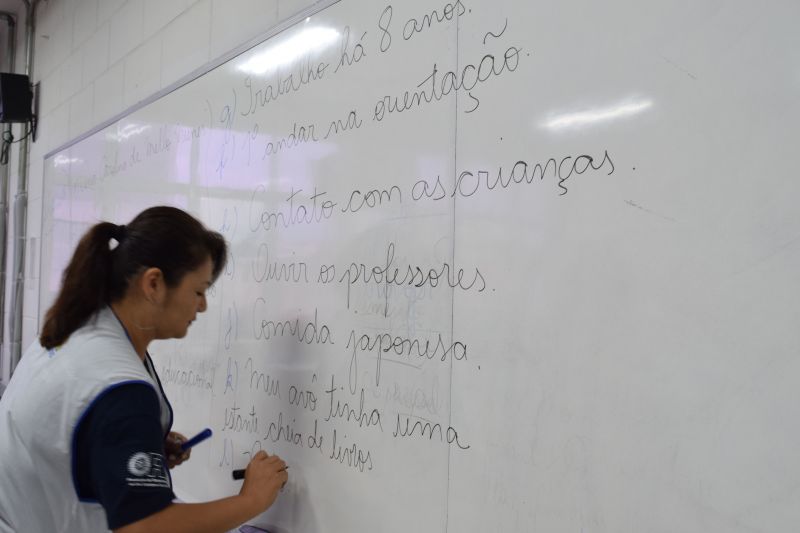 g) Trabalho há 8 anos.
1º andar na orientação.
h) Contato com as crianças.
Ouvir os professores.
j) Comida japonesa.
k) Meu avô tinha uma
estante cheia de livros
l)